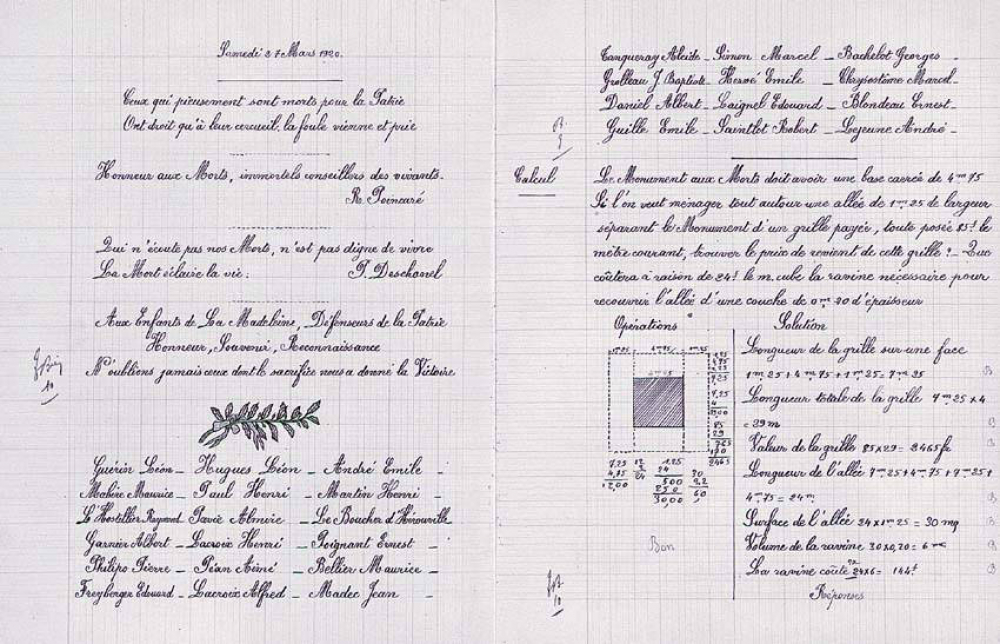 Samedi 27 Mars 1920.
Ceux qui pieusement sont morts pour la Patrie
Ont droit qu'à leur cercueil, la foule vienne et prie
Honneur aux Morts, immortels conseillers des vivants.
R. Poincaré
Qui n'écoute pas nos Morts, n'est pas digne de vivre
La Mort éclaire la vie.
P. Deschanel
Aux Enfants de La Madeleine, Défenseurs de la Patrie
Honneur, Souvenir, Reconnaissance
N'oublions jamais ceux dont le sacrifice nous a donné la Victoire
10
Guérin Léon _ Hugues Léon _ André Emile _
Mahère Maurice _ Paul Henri _ Martin Henri _
L'Hostillier Raymond _ Pavie Almire _ Le Boucher d'Hérouville _
Garnier Albert _ Lacroix Henri _ Poignant Ernest _
Philipo Pierre _ Péan Aimé _ Bellier Maurice _
Freyberger Edouard _ Lacroix Alfred _ Madec Jean _
Tanqueray Alcide _ Simon Marcel _ Bachelot Georges _
Grolleau J. Baptiste _ Hervé Emile _ Chrysostôme Marcel _
Daniel Albert _ Laignel Edouard _ Blondeau Ernest _
Guille Emile _ Saintlot Robert _ Lejeune André _
B
9
Calcul
Le Monument aux Morts doit avoir une base carrée de 4m 75
Si l'on veut ménager tout autour une allée de 1m,25 de largeur
séparant le Monument d'un grille payée, toute posée 85f le
mètre courant, trouver le prix de revient de cette grille? _ Que
coûtera à raison de 24f le m. cube la ravine nécessaire pour
recouvrir l'allée d'une couche de 0m 20 d'épaisseur
Opérations
1m25 1m25
4m75
1,25
4,75
1,25
7,25
7,25
4
29,00
85
29
765
170
2465
7,25
4,75
12,00
12
2
24
1,25
24
500
250
30,00
30
0,2
6,0
Bon
10
Solution
Longueur de la grille sur une face
1m,25 + 4m,75 + 1m25 = 7m 25
B
Longueur totale de la grille 7m 25 x 4
= 29 m
B
Valeur de la grille 85 x 29 = 2465 fr
B
Longueur de l'allée 7m25 + 4m75 + 7m25 +
4m75 = 24m
B
Surface de l'allée 24 x 1m25 = 30 mq
B
Volume de la ravine 30 x 0,20 = 6 mc
B
La ravine coûte 24 x 6 = 144f
B
Réponses